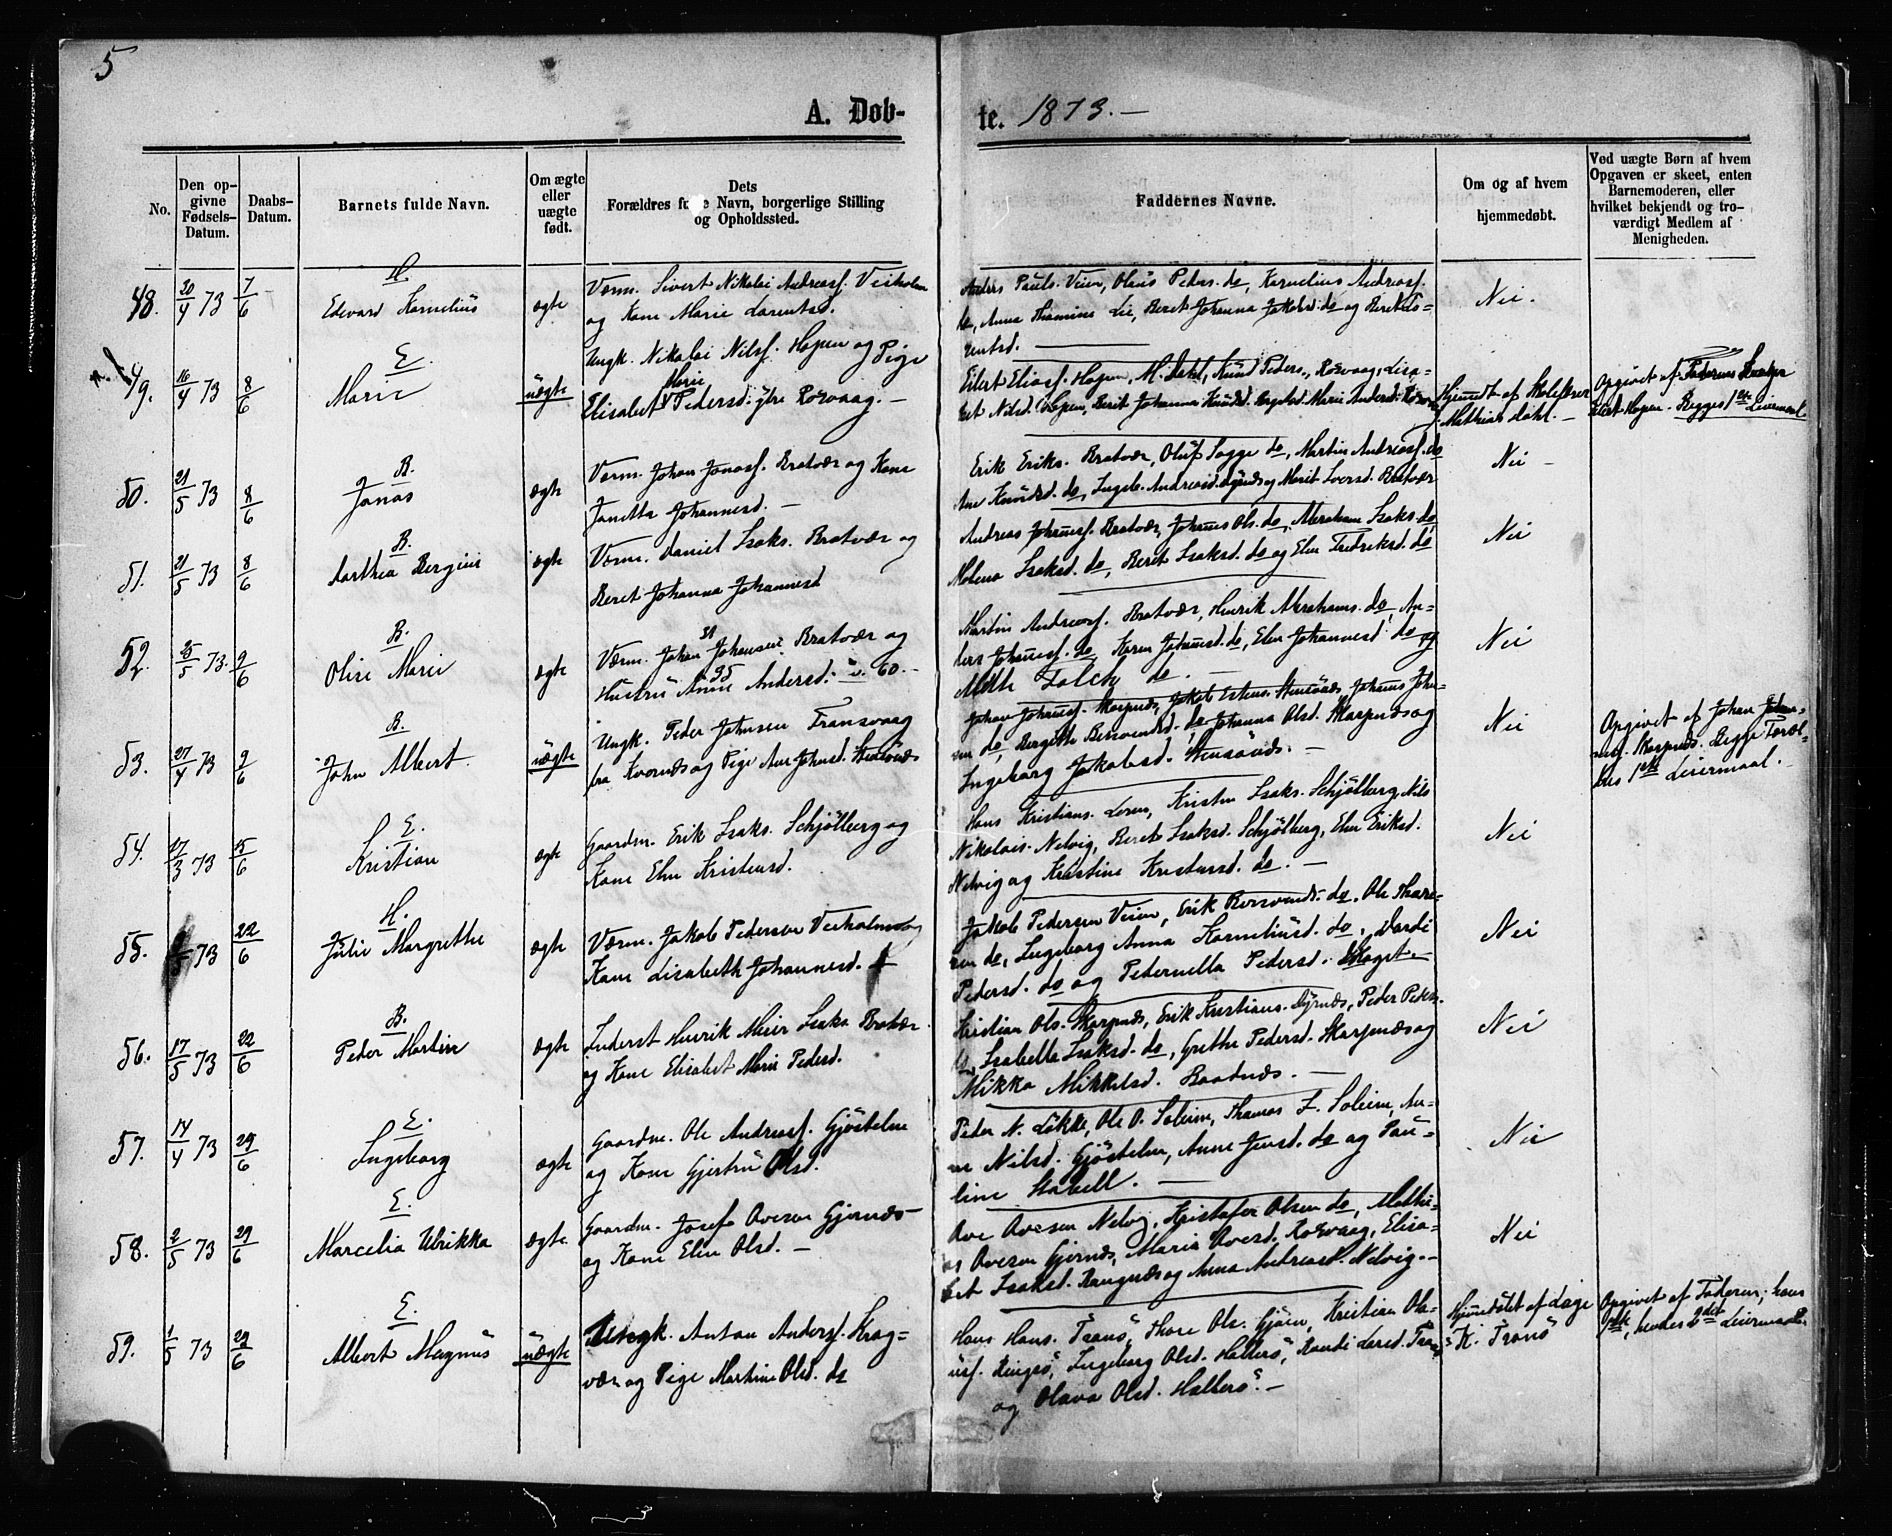 5
A. Døb-
te. 1873. —
No.
Den op-
givne
Fødsels-
Datum.
Daabs-
Datum.
Barnets fulde Navn.
Om ægte
eller
uægte
født.
Dets
Forældres fulde Navn, borgerlige Stilling
og Opholdssted.
Faddernes Navne.
Om og af hvem
hjemmedøbt.
Ved uægte Børn af hvem
Opgaven er skeet, enten
Barnemoderen, eller
hvilket bekjendt og tro-
værdigt Medlem af
Menigheden.
48. 20/4 73 7/6
H.
Edevard Kornelius
ægte
Værm. Sivert Nikolai Andreasf. Veiholmen
og Kone Marie Larentsd.
Anders Pauls. Veien, Olaus Peders. do, Kornelius Andreasf.
do, Anna Lie, Beret Johanna Jakobsd. do og Beret
Nei.
49. 16/4 73 8/6
E.
Marie
uægte
Ungk. Nikolai Nilsf. Hopen og Pige
Elisabet Marie Pedersd. ytre Rosvaag. —
Eilert Eliasf. Hopen, M. Dahl, Knud Peders., Rosvaag, Lisa-
bet Nilsd. Hopen, Berit Johanna Knudsd. Marie Andersd.
Hjemedt af Skolelærer
Mathias Dahl. —
Opgivet af Faderens
Eilert Hopen. Begges 1ste Leiermaal
50. 21/5 73 8/6
B.
Jonas
ægte
Værm. Johan Jonasf. Bratvær og Kone
Janetta Johannesd. —
Erik Eriks. Bratvær, Oluf Sagge do, Martin Andreasf. do
Ane Knudsd. do, Ingeb. Andreasd. Dyrnæs og Marit Iversd. Bratvær
Nei —
51. 21/5 73 8/6
B.
Dorthea Bergine
ægte
Værm. Daniel Isaks. Bratvær og
Beret Johanna Johannesd
Andreas Johannesf. Bratvær, Johannes Ols. do, Abraham Isaks. do,
Malena Isaksd. do, Beret Isaksd. do og Elen Fredriksd. do
Nei
52. 25/5 73. 9/6
B.
Olise Marie
ægte
Værm. Johan Johansen Bratvær og
31
Hustru Anne Andersd. 60. —
35
Martin Andreasf. Bratvær, Henrik Abrahams. do, An-
ders Johannesf. do, Karen Johannesd. do, Elen Johannesd. do og
Mette Falck do. —
Nei
53. 27/4 73 9/6
B.
John Albert.
uægte
Ungk. Peder Johnsen Fransvaag
fra Kvernæs og Pige Ane Johnsd. Stensønæs
Johan Johansf. Skarpnæs, Jakob Estens. Stensønæs, Johannes John-
sen do, Bergitte Bersvendsd. do, Johanna Olsd. Skarpnæs og
Ingeborg Jakobsd. Stensønæs. —
Nei
Opgivet af Johan Johan-
nesf. Skarpnæs. Begge Foræl-
dres 1ste Leiermaal.
54. 17/3 73 15/6
E.
Kristian
ægte
Gaardm. Erik Isaks. Schjølberg og
Kone Elen Kristensd.
Hans Kristians. Leren, Kristen Isaks. Schjølberg, Nils
Nikolais. Nelvig, Beret Isaksd. Schjølberg, Elen Eriksd.
Nelvig og Kristine Kristensd. do. —
Nei
55. /5 73 22/6
H.
Julie Margrethe
ægte
Værm. Jakob Pedersen Veiholmen og
Kone Lisabeth Johannesd.
Jakob Pedersen Veien, Erik Bersvends. do, Ole Thore-
sen do, Ingeborg Anna Korneliusd. do, Dardi
Pedersd. do og Pedernella Pedersd. Skaget —
Nei
56. 17/5 73 22/6
B.
Peder Martin
ægte
Inderst Henrik Meier Isaks. Bratvær
og Kone Elisabet Marie Pedersd.
Kristian Ols. Skarpnæs, Erik Kristians. Dyrnæs, Peder Peders.
do, Isabella Isaksd. do, Grethe Pedersd. Skarpnæs og
Mikka Mikkelsd. Baadnæs. —
Nei
57. 14/4 73 29/6
E.
Ingeborg
ægte
Gaardm. Ole Andreasf. Gjøstølen
og Kone Gjertru Olsd.
Peder N. Løkke, Ole O. Soleim, Thomas I. Soleim, An-
ne Nilsd. Gjøstølen, Anne Jensd. do og Pau-
line Stabell. —
Nei
58. 2/5 73 29/6
E.
Marcelia Ulrikka
ægte
Gaardm. Josef Ovesen Gjernæs
og Kone Elen Olsd. —
Ove Ovesen Nelvig, Kristofer Olsen do, Mathi-
as Ovesen Gjernæs, Maria Ovesd. Rosvaag, Elisa-
bet Isaksd. Rangnæs og Anna Andreasd. Nelvig. —
Nei
59. 1/5 73 29/6
E.
Albert Magnus
uægte
Ungk. Anton Andersf. Krog-
vær og Pige Martine Olsd. do
Hans Hans. Tranø, Thore Ols. Gjøen, Kristian Ola-
usf. Ringsø, Ingeborg Olsd. Hallersø, Randi Larsd. Tranø
og Olava Olsd. Hallersø. —
Hjemdøbt af Lage
K. Tranø
Opgivet af Faderen; hans
1ste, hendes 2det Leiermaal.